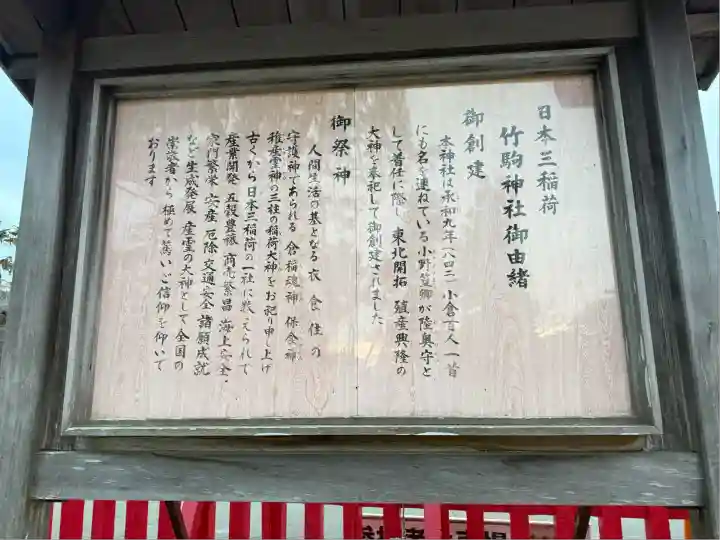 日本三稲荷
竹駒神社御由緒
御創建
本神社は承和九年(八四二)小倉百人一首
にも名を連ねている小野篁卿が陸奥守と
して着任に際し 東北開拓 殖産興隆の
大神を奉祀して御創建されました
御祭神
人間生活の基となる 衣 食 住 の
守護神であられる 倉稲魂神 保食神
稚産霊神の三柱の稲荷大神をお祀り申し上げ
古くから日本三稲荷の一社に数えられて
産業開発 五穀豊穣 商売繁昌 海上安全・
家門繁栄 安産 厄除 交通安全 諸願成就
など生成発展 産霊の大神として全国の
崇敬者から極めて篤いご信仰を仰いで
おります